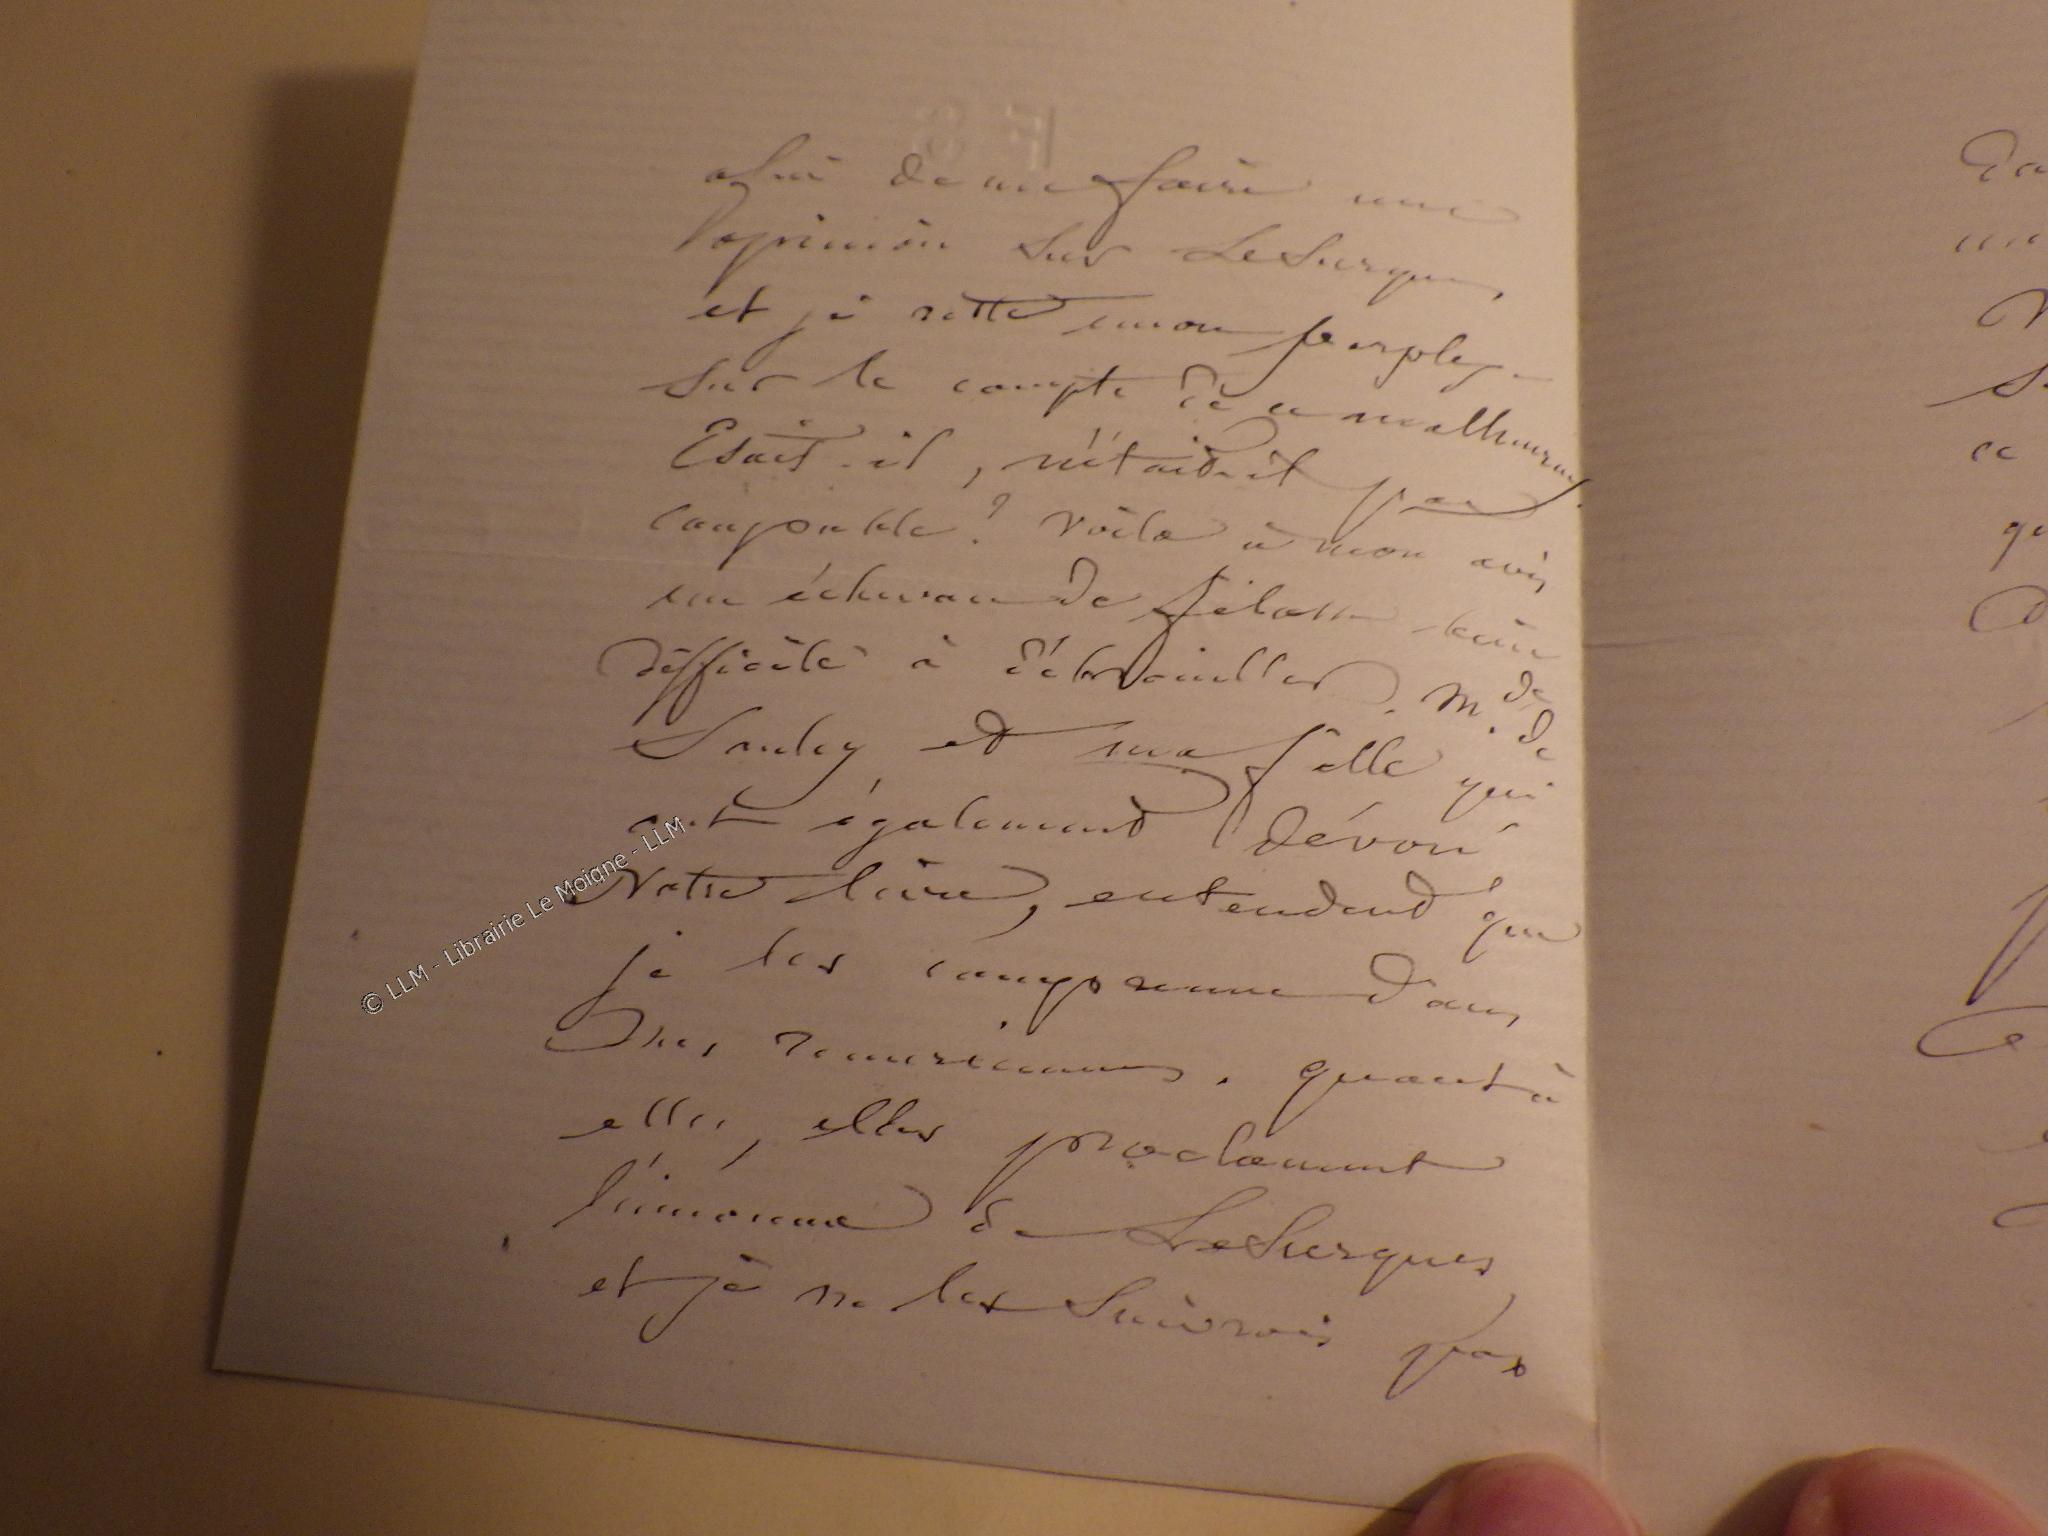 FS
afin de me faire une
opinion sur LeSurques,
et je reste encore perplexe
sur le compte de ce malheureux.
Etait-il, n'était-il pas
coupable? Voila à mon avis
un écheveau de filasse bien
difficile à débrouiller. M.de de
Saulcy et ma fille qui
ont également dévoré
Notre livre, entendent que
je les comprenne dans
mes remerciements. quant à
elles, elles proclament
l'innocence de LeSurques,
et je ne les suivrais pas
© LLM - Librairie Le Moigne - LLM